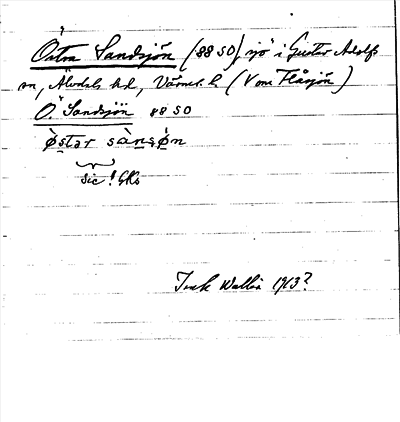 Östra Sandsjön (88 SO), sjö i Gustav Adolfs
sn, Älvdals hd, Värml. l. (V om Flåsjön)
Ö. Sandsjön 88 SO
sic! GKs
Wallin 1913?